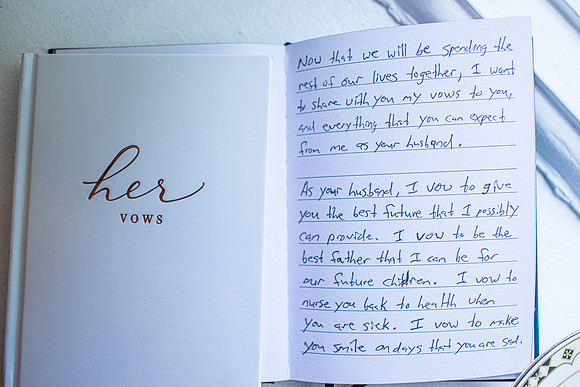 her
VOWS
Now that we will be spending the
rest of our lives together, I want
to share with you my vows to you,
and everything that you can expect
from me as your husband.
As your husband, I vow to give
you the best future that I possibly
can provide. I vow to be the
best father that I can be for
our future children. I vow to
nurse you back to health when
you are sick. I vow to make
you smile on days that you are sad.